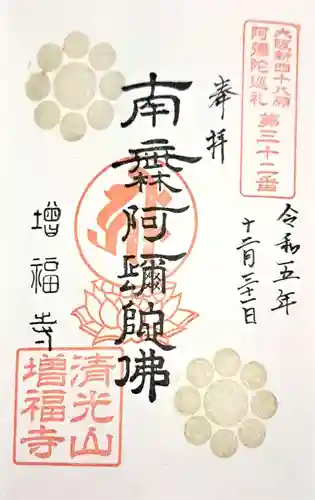 大阪新四十八願
阿彌陀巡礼 第三十二番
奉拝
令和五年
十二月三十一日
南無阿彌陀佛
増福寺
清光山
増福寺